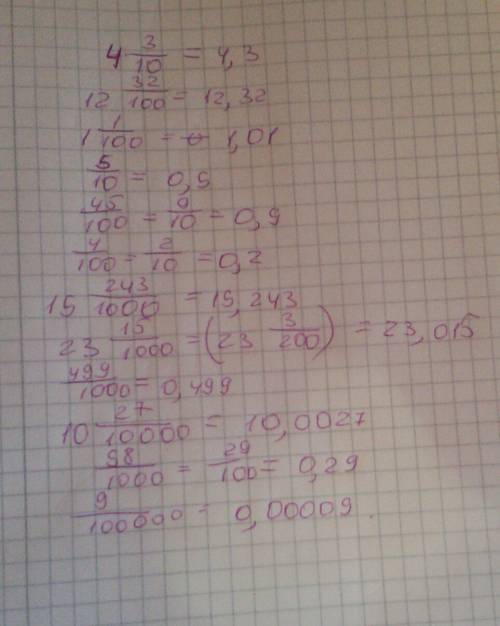 4 3/10 = 4,3
12 32/100 = 12,32
1 1/100 = 1,01
5/10 = 0,5
45/100 = 9/10 = 0,9
4/100 = 2/10 = 0,2
15 243/1000 = 15,243
23 15/1000 = (23 3/200) = 23,015
499/1000 = 0,499
10 27/10000 = 10,0027
98/1000 = 29/100 = 0,29
9/100000 = 0,00009.